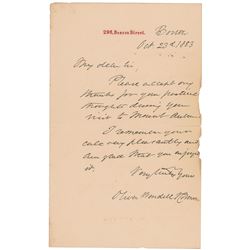 296, Beacon Street.
Boston
Oct 23d 1883
My dear Sir,
Please accept my
thanks for your
thoughts during your
visit to Mount Auburn
I remember your
call very pleasantly and
am glad that you enjoyed
it.
Very truly Yours
Oliver Wendell Holmes